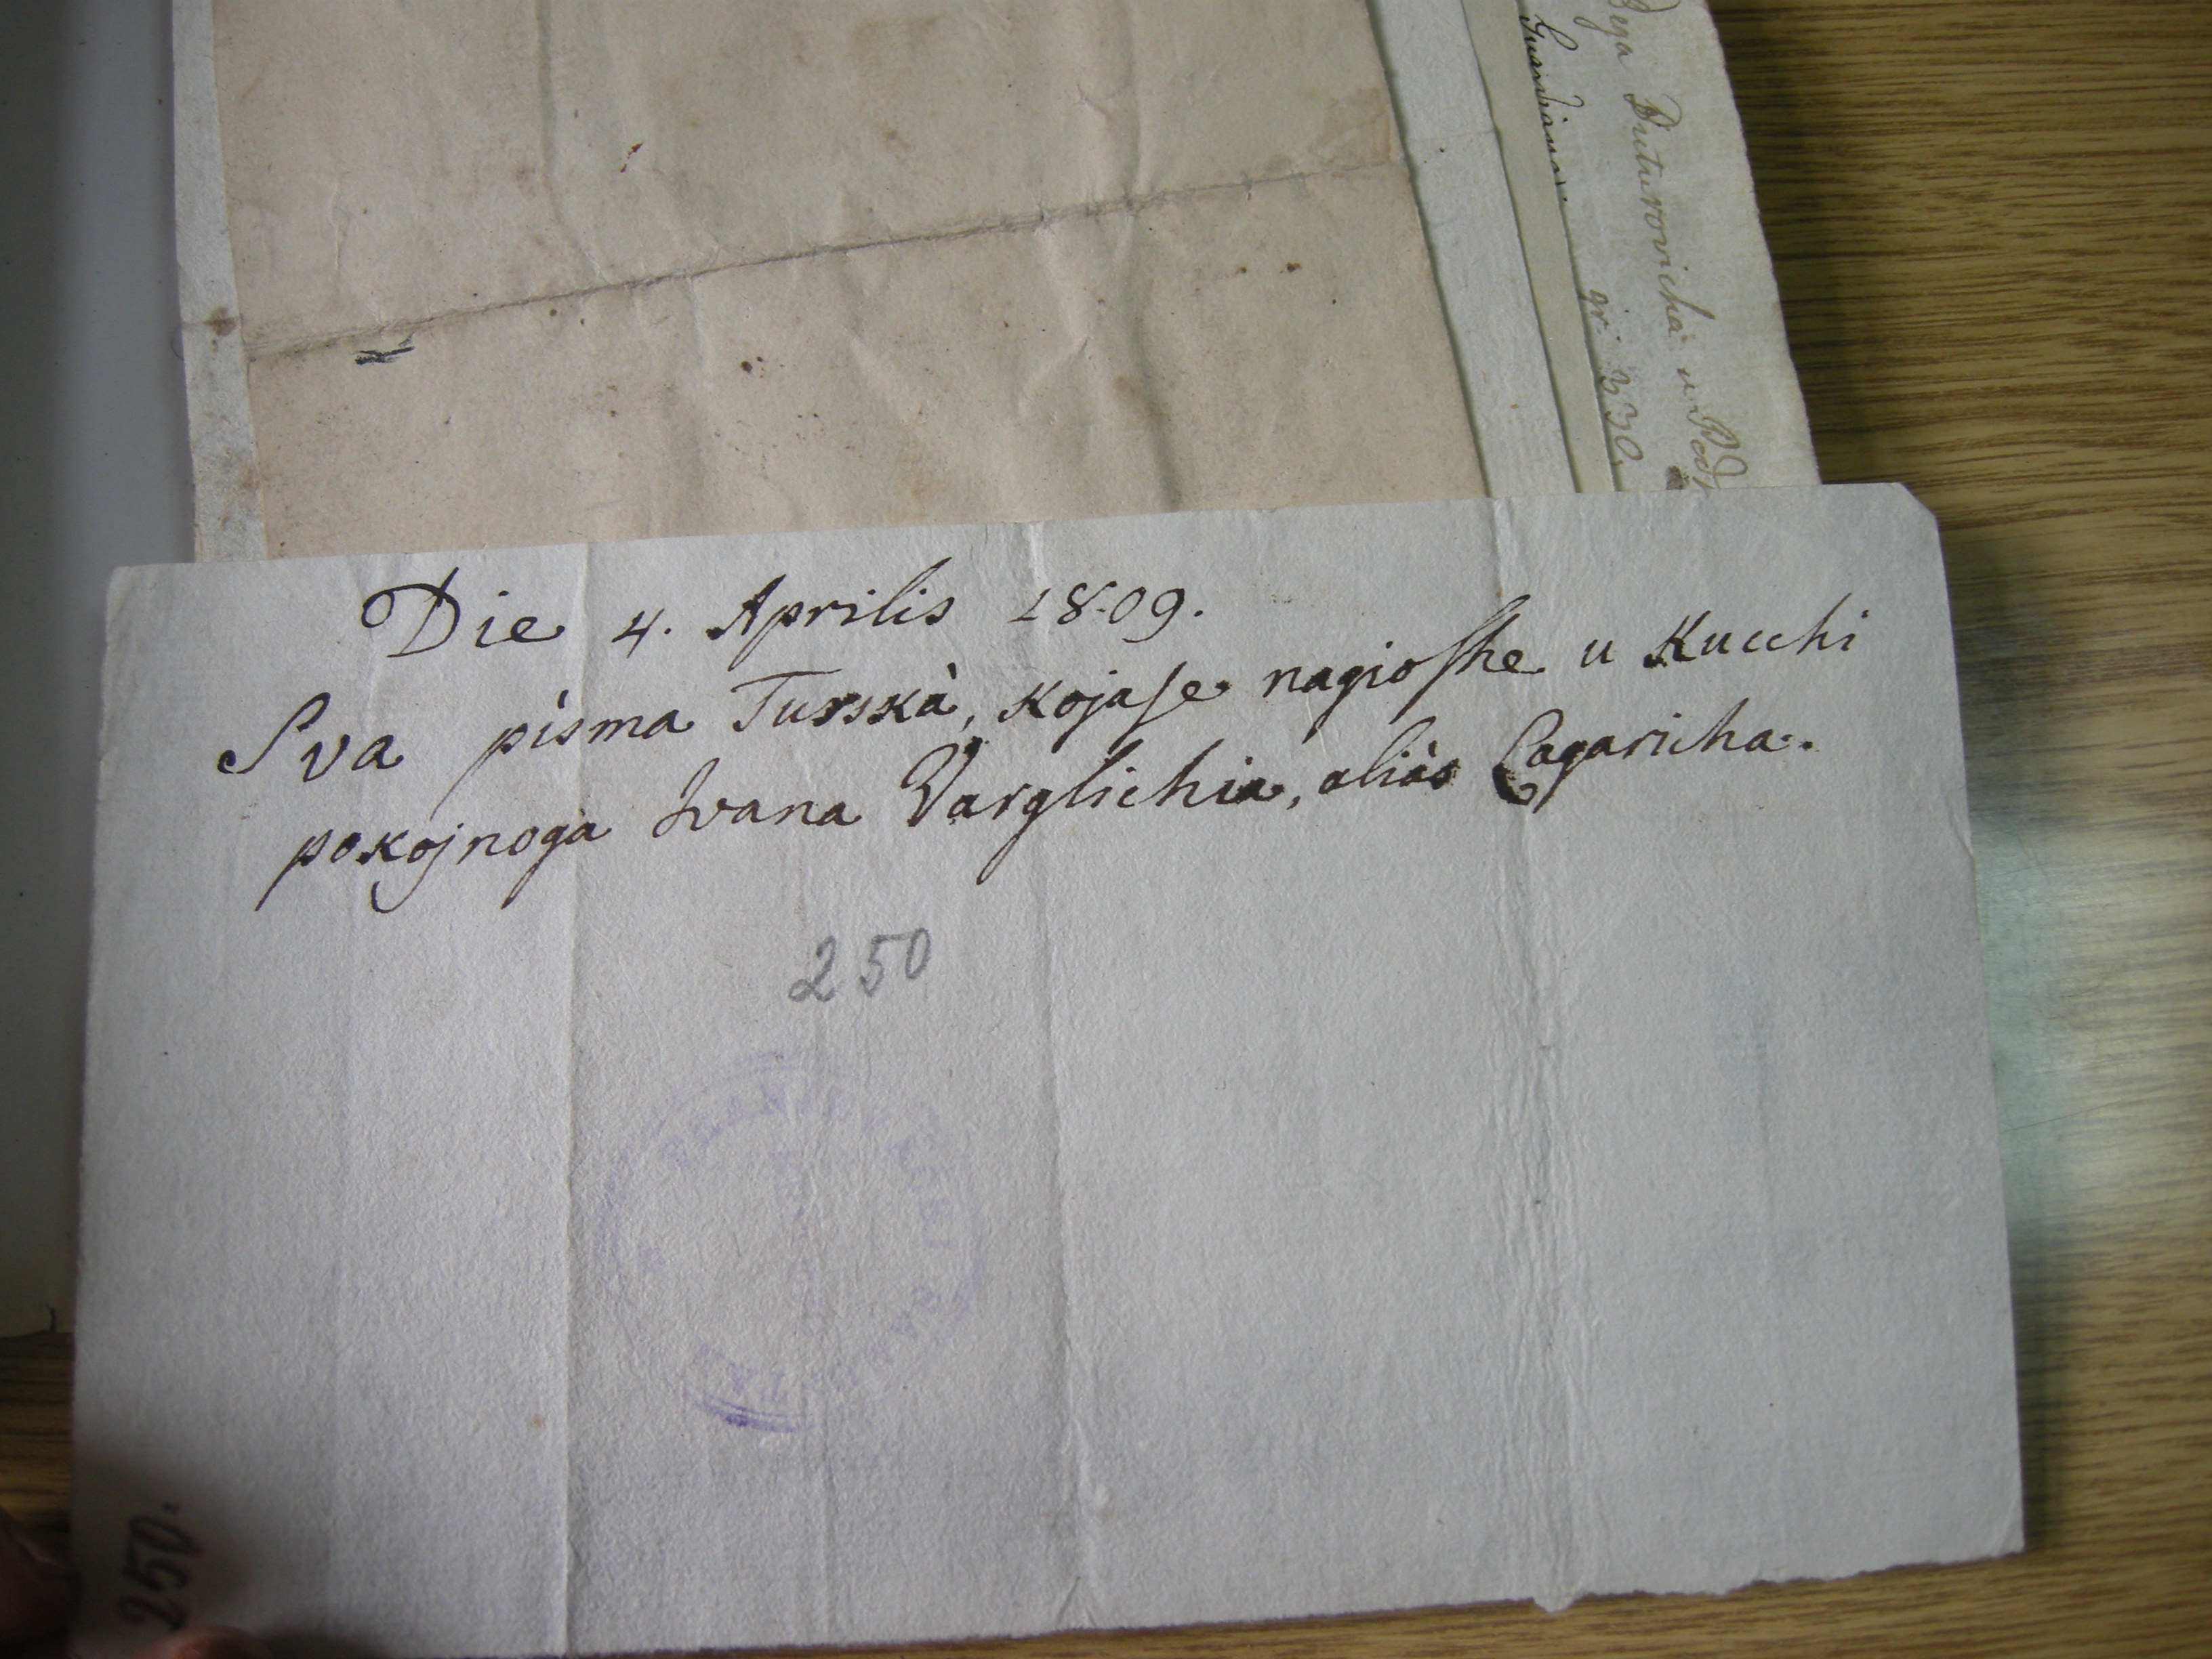 Bega Duturovicha u
Guardiana
gr: 330.
Die 4. Aprilis 1809.
Sva pisma Turskà, kojase nagioshe u Kucchi
pokojnoga Ivana Varglichia, aliàs Cagaricha.
250
250.